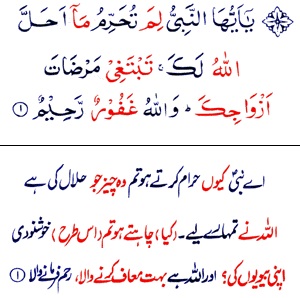 يٰۤاَيُّهَا النَّبِيُّ لِمَ تُحَرِّمُ مَاۤ اَحَلَّ
اللّٰهُ لَكَ ۚ تَبْتَغِيْ مَرْضَاتَ
اَزْوَاجِكَ ؕ وَاللّٰهُ غَفُوْرٌ رَّحِيْمٌ ۝۱
اے نبیؐ کیوں حرام کرتے ہو تم وہ چیز جو حلال کی ہے
اللہ نے تمہارے لیے۔ (کیا) چاہتے ہو تم (اس طرح) خوشنودی
اپنی بیویوں کی؟ اور اللہ ہے بہت معاف کرنے والا، رحم فرمانے والا ۝۱